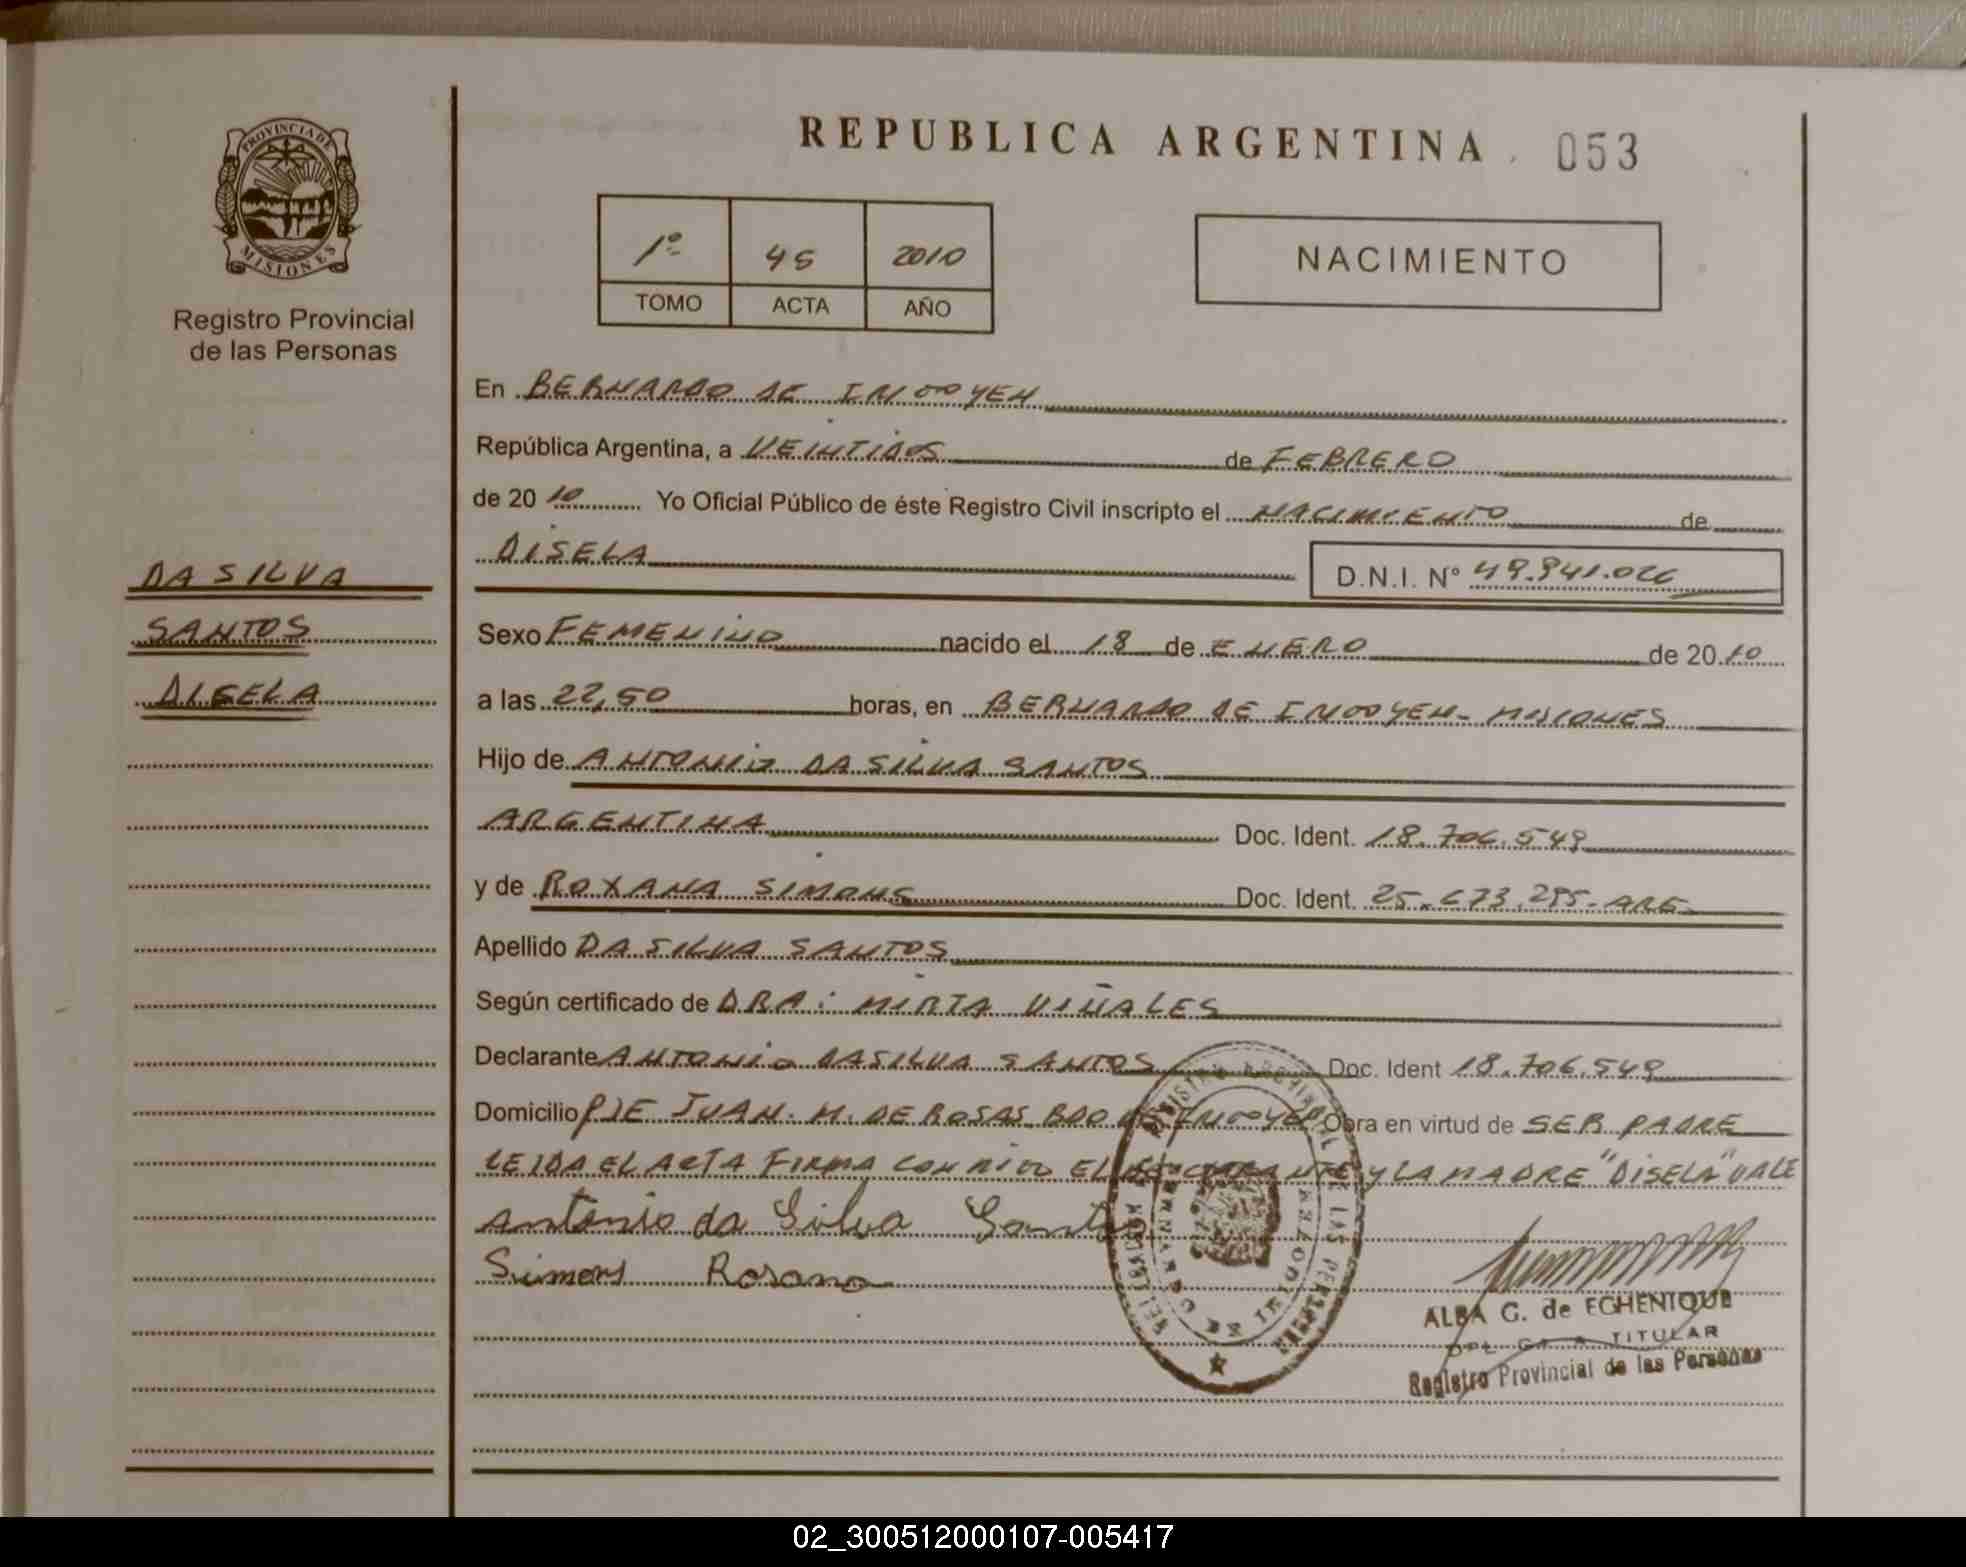 REPUBLICA ARGENTINA 053
PROVINCIA DE
MISIONES
Registro Provincial
de las Personas
1º 45 2010
TOMO ACTA AÑO
NACIMIENTO
En BERNARDO DE IRIGOYEN
República Argentina, a VEINTIDOS de FEBRERO
de 2010 Yo Oficial Público de éste Registro Civil inscripto el NACIMIENTO de
DISELA
D.N.I. Nº 49.941.026
DA SILVA
SANTOS
DISELA
Sexo FEMENINO nacido el 18 de ENERO de 2010
a las 22,50 horas, en BERNARDO DE IRIGOYEN- MISIONES
Hijo de ANTONIO DA SILVA SANTOS
ARGENTINA Doc. Ident. 18.706.549
y de ROXANA SIMONS Doc. Ident. 25.673.295- ARG-
Apellido DA SILVA SANTOS
Según certificado de DRA: MIRTA VIÑALES
Declarante ANTONIO DASILVA SANTOS Doc. Ident 18.706.549
Domicilio PJE JUAN. M. DE ROSAS BDO DE IRIGOYEN Obra en virtud de SER PADRE
LEIDA EL ACTA FIRMA CONMIGO EL DECLARANTE Y LA MADRE "DISELA" VALE
Antonio da Silva Santos
Simons Rosana
ALBA G. de ECHENIQUE
TITULAR
Registro Provincial de las Personas
02_300512000107-005417